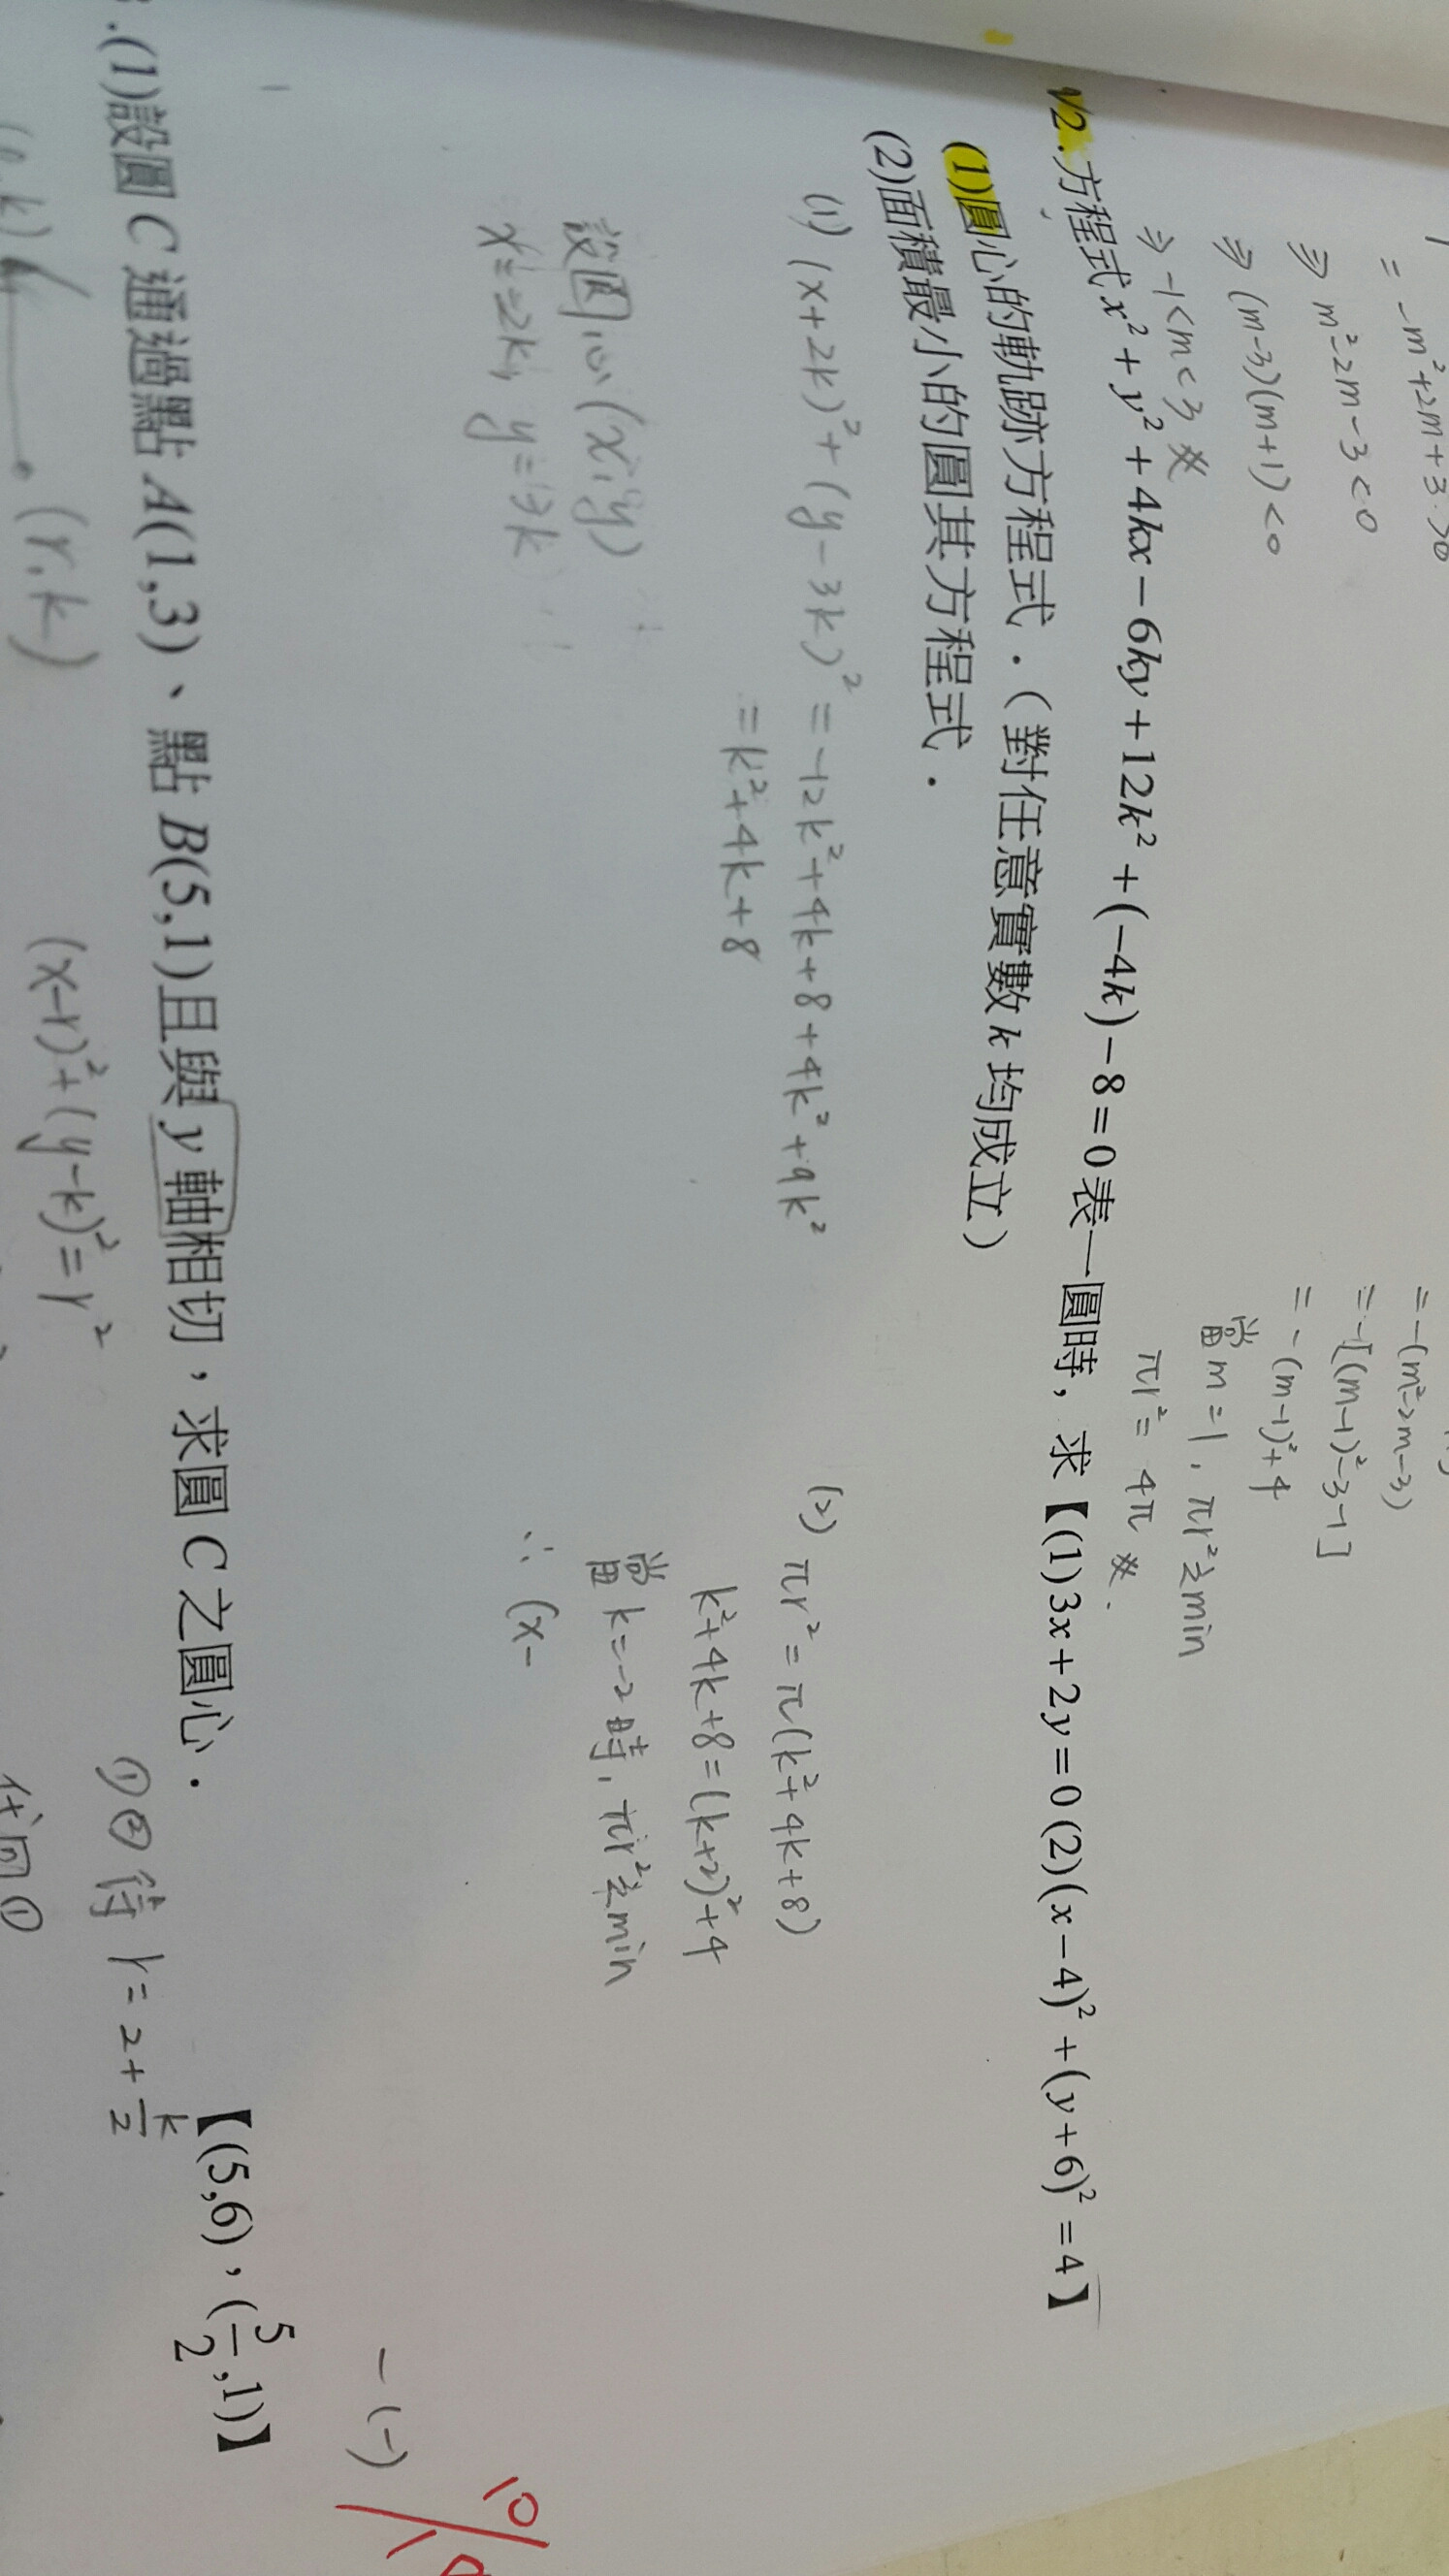 = -m²+2m+3>0
⇒ m²-2m-3<0
⇒ (m-3)(m+1)<0
⇒ -1<m<3 ※
= -(m²-2m-3)
= -[(m-1)²-3-1]
= -(m-1)²+4
當m=1, πr²之min
πr² = 4π ※.
2.方程式x²+y²+4kx-6ky+12k²+(-4k)-8=0表一圓時,求【(1)3x+2y=0(2)(x-4)²+(y+6)²=4】
(1)圓心的軌跡方程式.(對任意實數k均成立)
(2)面積最小的圓其方程式.
(1) (x+2k)²+(y-3k)² = -12k²+4k+8+4k²+9k²
= k²+4k+8
設圓心(x,y)
x=-2k, y=3k
(2) πr² = π(k²+4k+8)
k²+4k+8=(k+2)²+4
當k=-2時, πr²之min
∴ (x-
.(1)設圓C通過點A(1,3)、點B(5,1)且與y軸相切,求圓C之圓心.
【(5,6),(5/2,1)】
(r,k)
(x-r)²+(y-k)²=r²
①②得 r=2+k/2
代回①
-(-)
10